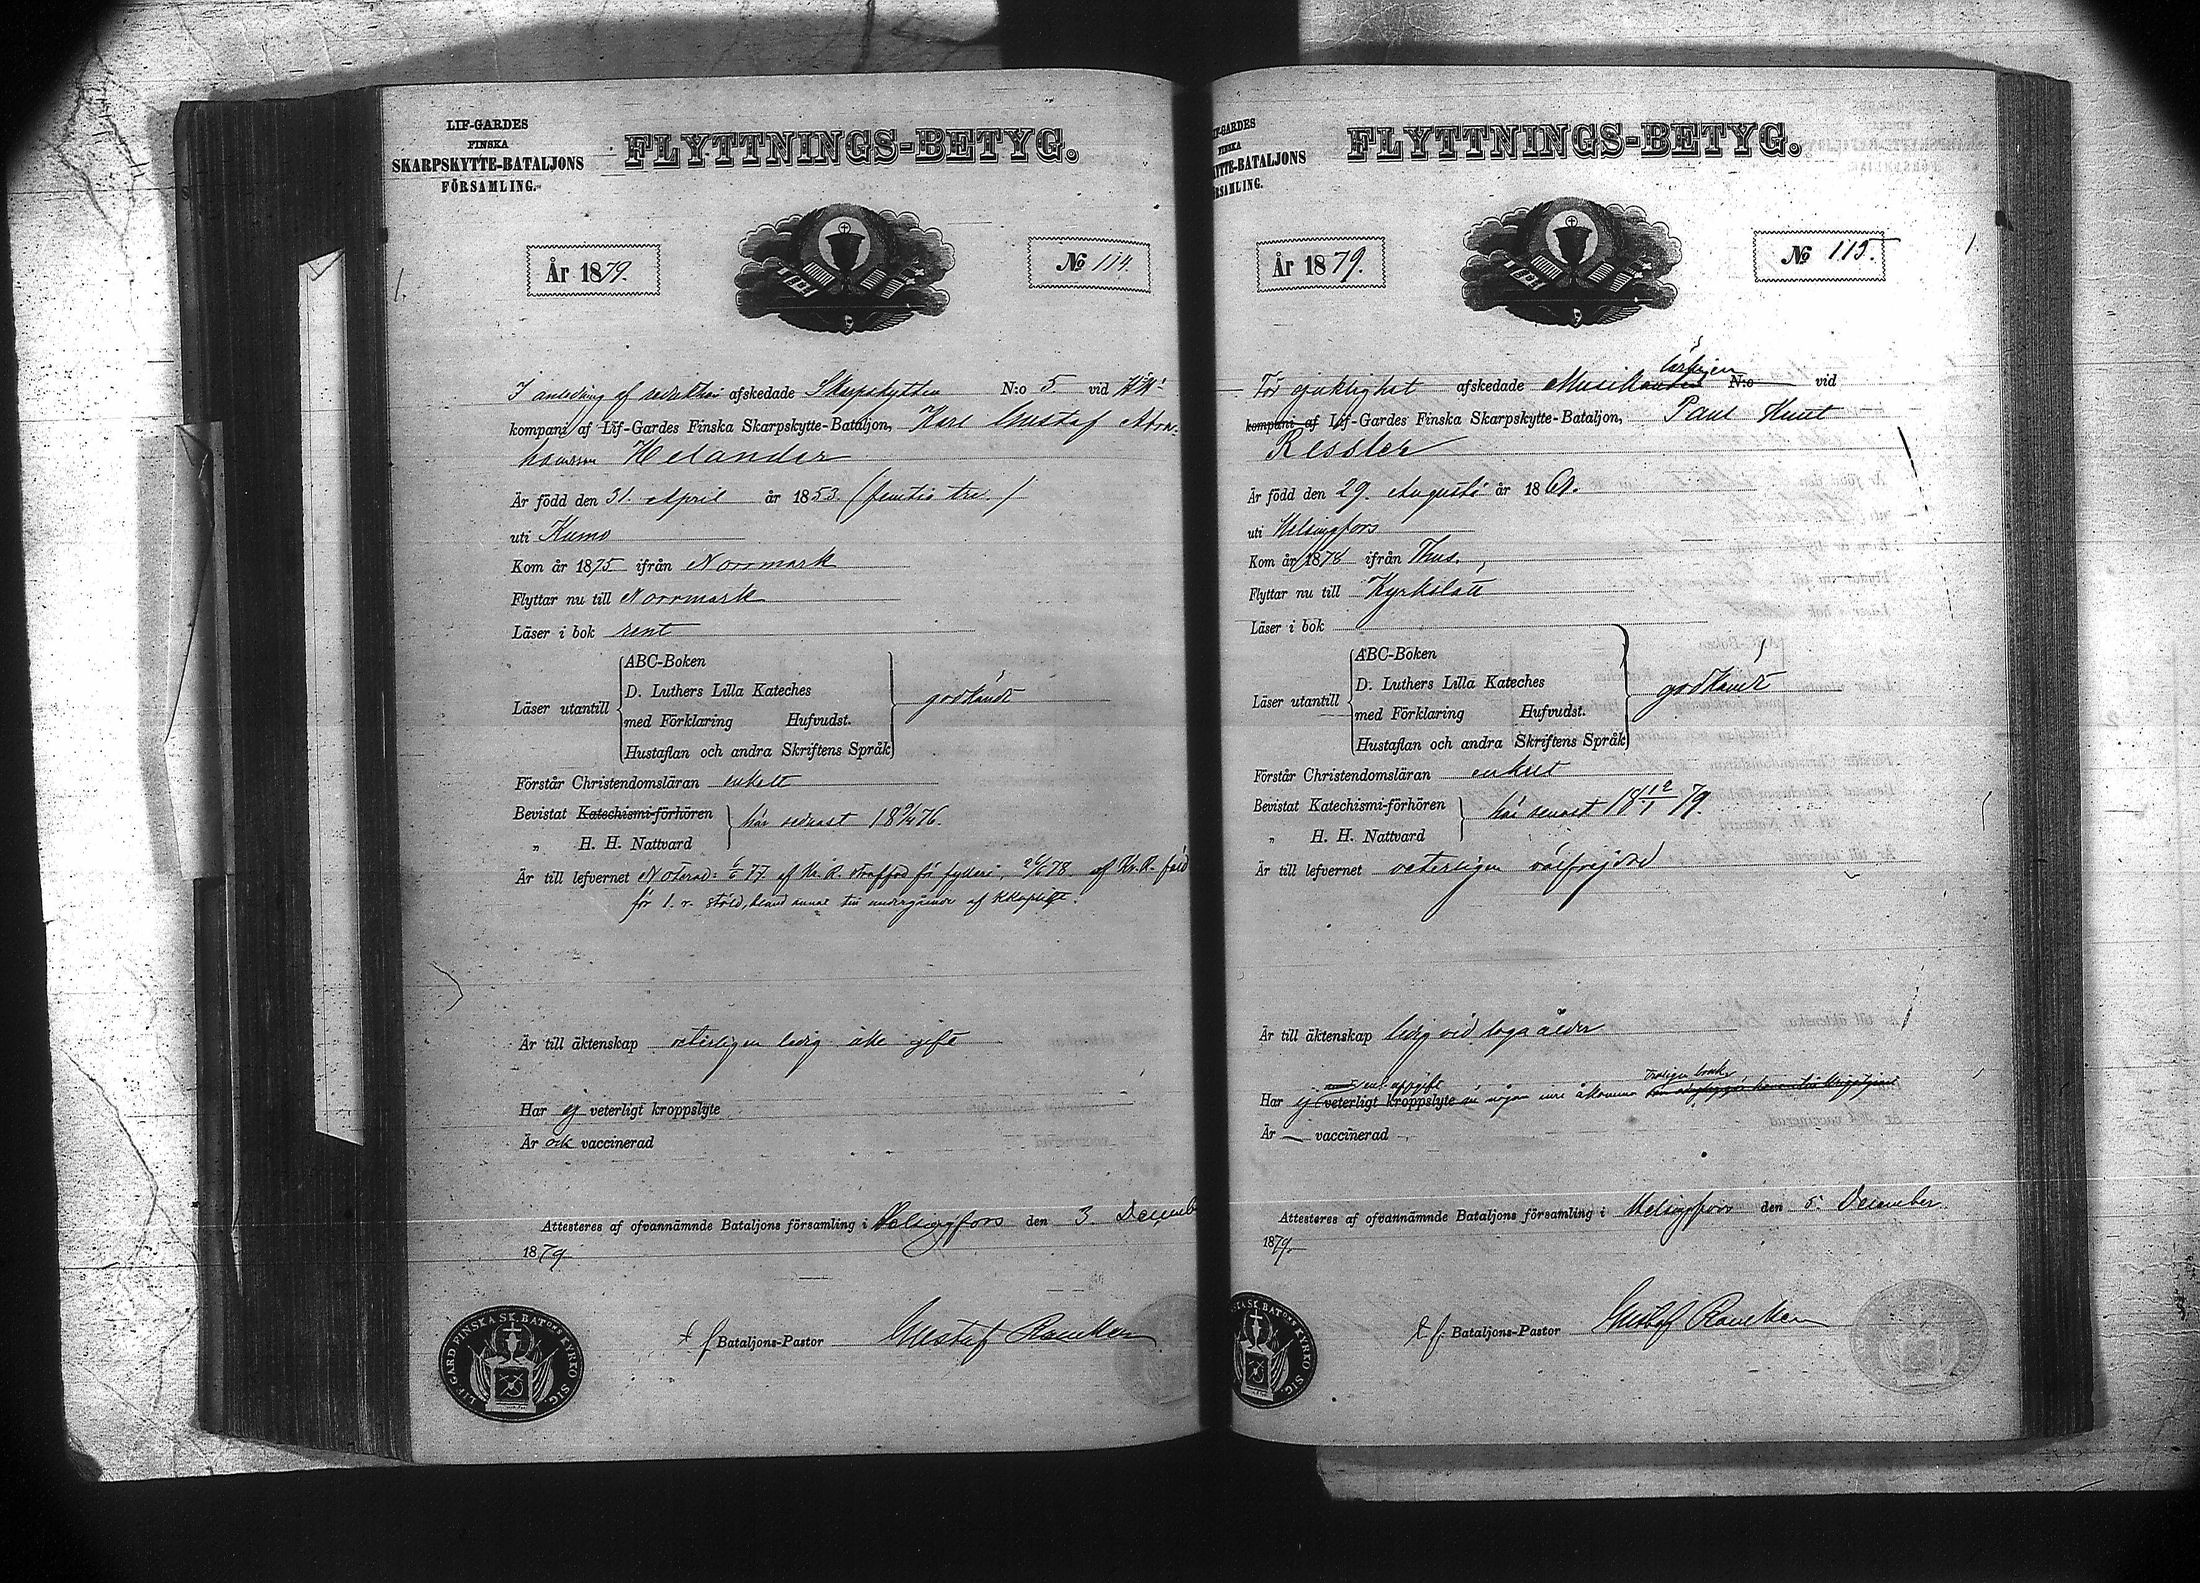 LIF-GARDES
FINSKA
SKARPSKYTTE-BATALJONS
FÖRSAMLING.
FLYTTNINGS-BETYG.
År 1879.
No 114.
I anledning af reduktion afskedade Skarpskytten N:o 5 vid
kompani af Lif-Gardes Finska Skarpskytte-Bataljon, Karl Gustaf Abra-
hamsson Helander
Är född den 31. April år 1853. (femtio tre.)
uti Kumo
Kom år 1875 ifrån Norrmark
Flyttar nu till Norrmark
Läser i bok rent
Läser utantill
ABC-Boken
D. Luthers Lilla Kateches
med Förklaring Hufvudst.
Hustaflan och andra Skriftens Språk
godkändt
Förstår Christendomsläran enkelt
Bevistat Katechismi-förhören
„ H. H. Nattvard
här senast 18 76.
Är till lefvernet Noterad: 77 af Kr. R. straffad för fylleri, 78 af Kr. R. fäld
för 1. r. stöld, bland annat till undergående af
Är till äktenskap veterligen ledig icke gift
Har ej veterligt kroppslyte
Är ock vaccinerad
Attesteres af ofvannämnde Bataljons församling i Helsingfors den 3 Decemb
1879.
t f Bataljons-Pastor Gustaf Rancken
LIF GARD FINSKA SK. BATONS KYRKO SIG.
F-GARDES
FINSKA
YTTE-BATALJONS
RSAMLING.
FLYTTNINGS-BETYG.
År 1879.
No 115.
1.
För sjuklighet afskedade Musikanten lärlingen N:o vid
kompani af Lif-Gardes Finska Skarpskytte-Bataljon, Paul Knut
Ressler
Är född den 29. Augusti år 1861.
uti Helsingfors
Kom år 1878 ifrån Thus.
Flyttar nu till Kyrkslätt
Läser i bok
Läser utantill
ABC-Boken
D. Luthers Lilla Kateches
med Förklaring Hufvudst.
Hustaflan och andra Skriftens Språk
godkändt
Förstår Christendomsläran enkelt
Bevistat Katechismi-förhören
„ H. H. Nattvard
här senast 18 12/1 79.
Är till lefvernet veterligen välfrejdad
Är till äktenskap ledig vid laga ålder
enl. uppgift
Har ej veterligt kroppslyte än någon inre åkomma
Är — vaccinerad
Attesteres af ofvannämnde Bataljons församling i Helsingfors den 5 December
1879.
t. f. Bataljons-Pastor Gustaf Rancken
SKA SK. BATONS KYRKO SIG.